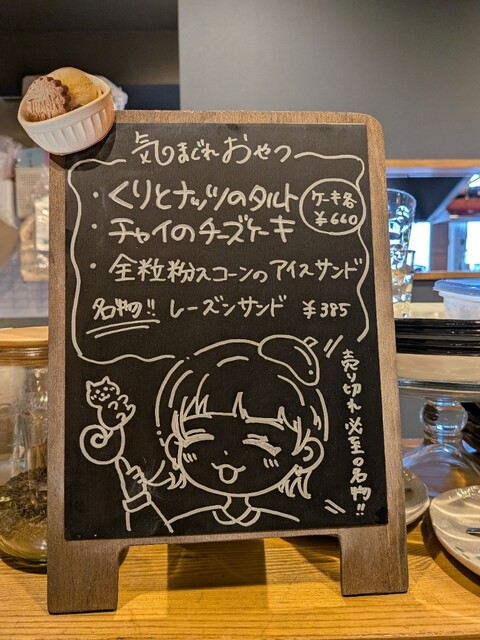 気まぐれおやつ
・くりとナッツのタルト
ケーキ各
￥660
・チャイのチーズケーキ
・全粒粉スコーンのアイスサンド
名物!! レーズンサンド ￥385
売り切れ必至の名物!!